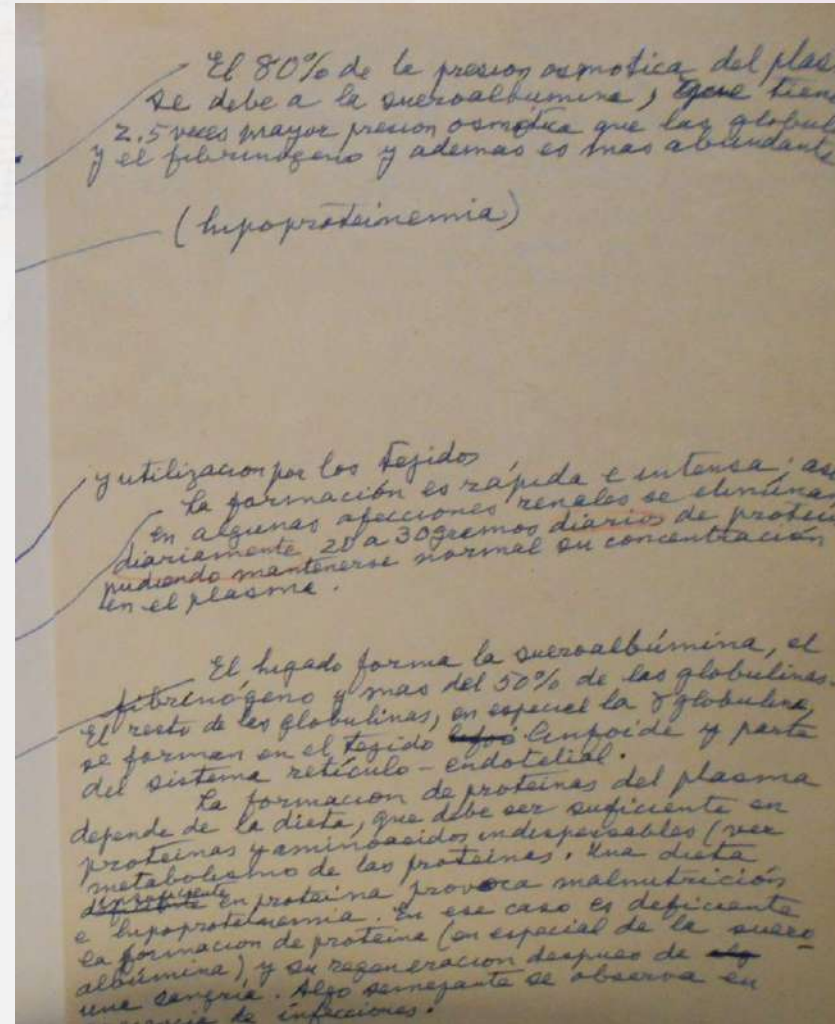 El 80% de la presion osmotica del plas
se debe a la sueroalbumina, que tien
2.5 veces mayor presion osmotica que las globul
y el fibrinogeno y ademas es mas abundante
(hipoproteinemia)
y utilizacion por los tegidos
La formación es rápida e intensa; asi
en algunas afecciones renales se eliminan
diariamente 20 a 30 gramos diarios de protei
pudiendo mantenerse normal su concentración
en el plasma.
El higado forma la sueroalbúmina, el
fibrinógeno y mas del 50% de las globulinas.
El resto de las globulinas, en especial la γ globulina,
se forman en el tegido linfoide y parte
del sistema retículo-endotelial.
La formacion de proteinas del plasma
depende de la dieta, que debe ser suficiente en
proteinas y aminoacidos indispensables (ver
metabolismo de las proteinas. Una dieta
en proteina provoca malnutrición
e hipoproteinemia. En ese caso es deficiente
la formacion de proteina (en especial de la suero
albúmina) y su regeneracion despues de
una sangria. Algo semejante se observa en
de infecciones.